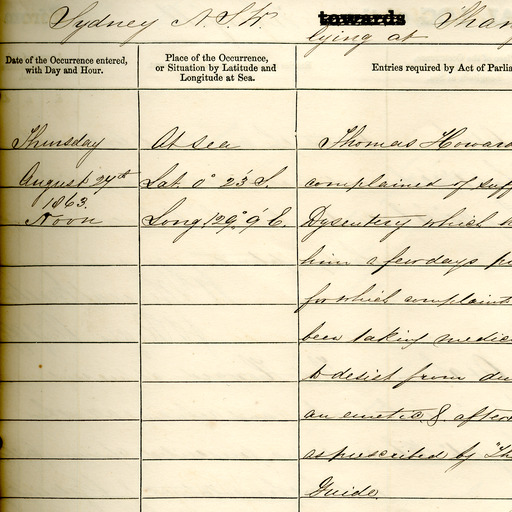 Sydney N.S.W. towards Shan
lying at
Date of the Occurrence entered, with Day and Hour.
Place of the Occurrence, or Situation by Latitude and Longitude at Sea.
Entries required by Act of Parlia
Thursday At Sea Thomas Howard
August 27th Lat 0° 23' S. complained of suff
1863.
Noon Long 129° 9' E. Dysentery which h
him a few days
for which complaint
been taking medic
to desist from
an emetic & after
as prescribed by "Th
Guide